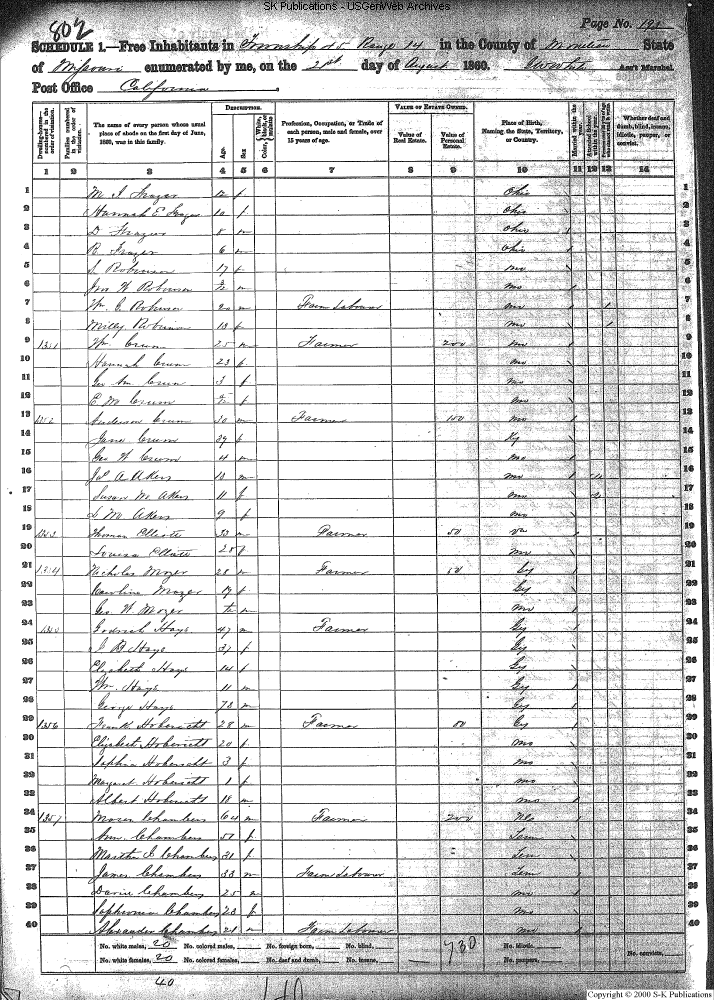 SK Publications - USGenWeb Archives
802
Page No. 192
SCHEDULE 1.—Free Inhabitants in Township 45 Range 14 in the County of Moniteau State
of Missouri enumerated by me, on the 21st day of August 1860. Ass't Marshal.
Post Office California
Dwelling-houses—numbered in the order of visitation.
Families numbered in the order of visitation.
The name of every person whose usual place of abode on the first day of June, 1860, was in this family.
DESCRIPTION.
Age.
Sex.
Color,
Profession, Occupation, or Trade of each person, male and female, over 15 years of age.
VALUE OF ESTATE OWNED.
Value of Real Estate.
Value of Personal Estate.
Place of Birth, Naming the State, Territory, or Country.
Married within the year.
Attended School within the year.
Whether deaf and dumb, blind, insane, idiotic, pauper, or convict.
1 2 3 4 5 6 7 8 9 10 11 12 13 14
1 M I Frazer 12 f Ohio 1
2 Hannah E Frazer 10 f Ohio 2
3 D Frazier 8 m Ohio 3
4 R Frazer 6 m Ohio 4
5 S Robinson 17 f Mo 5
6 W Robinson m Mo 6
7 Wm C Robinson 20 m Farm Labourer Mo 7
8 Milly Robinson 13 f Mo 8
9 1351 Wm Crum 25 m Farmer 200 Mo 9
10 Hannah Crum 23 f Mo 10
11 Crum 3 f Mo 11
12 E M Crum f Mo 12
13 1352 Anderson Crum 30 m Farmer 150 Mo 13
14 Jane Crum 29 f Ky 14
15 Geo W Crum 4 m Mo 15
16 Akers 13 m Mo 16
17 Susan M Akers 11 f Mo 17
18 S M Akers 9 f Mo 18
19 1353 Thomas Elliott 33 m Farmer 50 Va 19
20 Louisa Elliott 25 f Mo 20
21 1354 Nicholas Mozer 28 m Farmer 50 Gy 21
22 Caroline Mozer 19 f Gy 22
23 Geo W Mozer m Mo 23
24 Hays 47 m Farmer Gy 24
25 Hays 37 f Gy 25
26 Elizabeth Hays 14 f Gy 26
27 Wm Hays 11 m Gy 27
28 George Hays 73 m Gy 28
29 1356 Frank Hobenicht 28 m Farmer 50 Gy 29
30 Elizabeth Hobenicht 20 f Mo 30
31 Sophia Hobenicht 3 f Mo 31
32 Margaret Hobenicht 1 f Mo 32
33 Albert Hobenicht 18 m Mo 33
34 1357 Moses Chambers 64 m Farmer 200 NC 34
35 Ann Chambers 57 f Tenn 35
36 Martha J Chambers 31 f Tenn 36
37 James Chambers 33 m Farm Labourer Tenn 37
38 Chambers 25 m Mo 38
39 Sophronia Chambers 23 f Mo 39
40 Alexander Chambers 21 m Farm Labourer Mo 40
No. white males, 20 No. colored males, No. foreign born, No. blind, 730 No. idiotic,
No. white females, 20 No. colored females, No. deaf and dumb, No. insane, No. paupers, No. convicts,
40
Copyright © 2000 S-K Publications